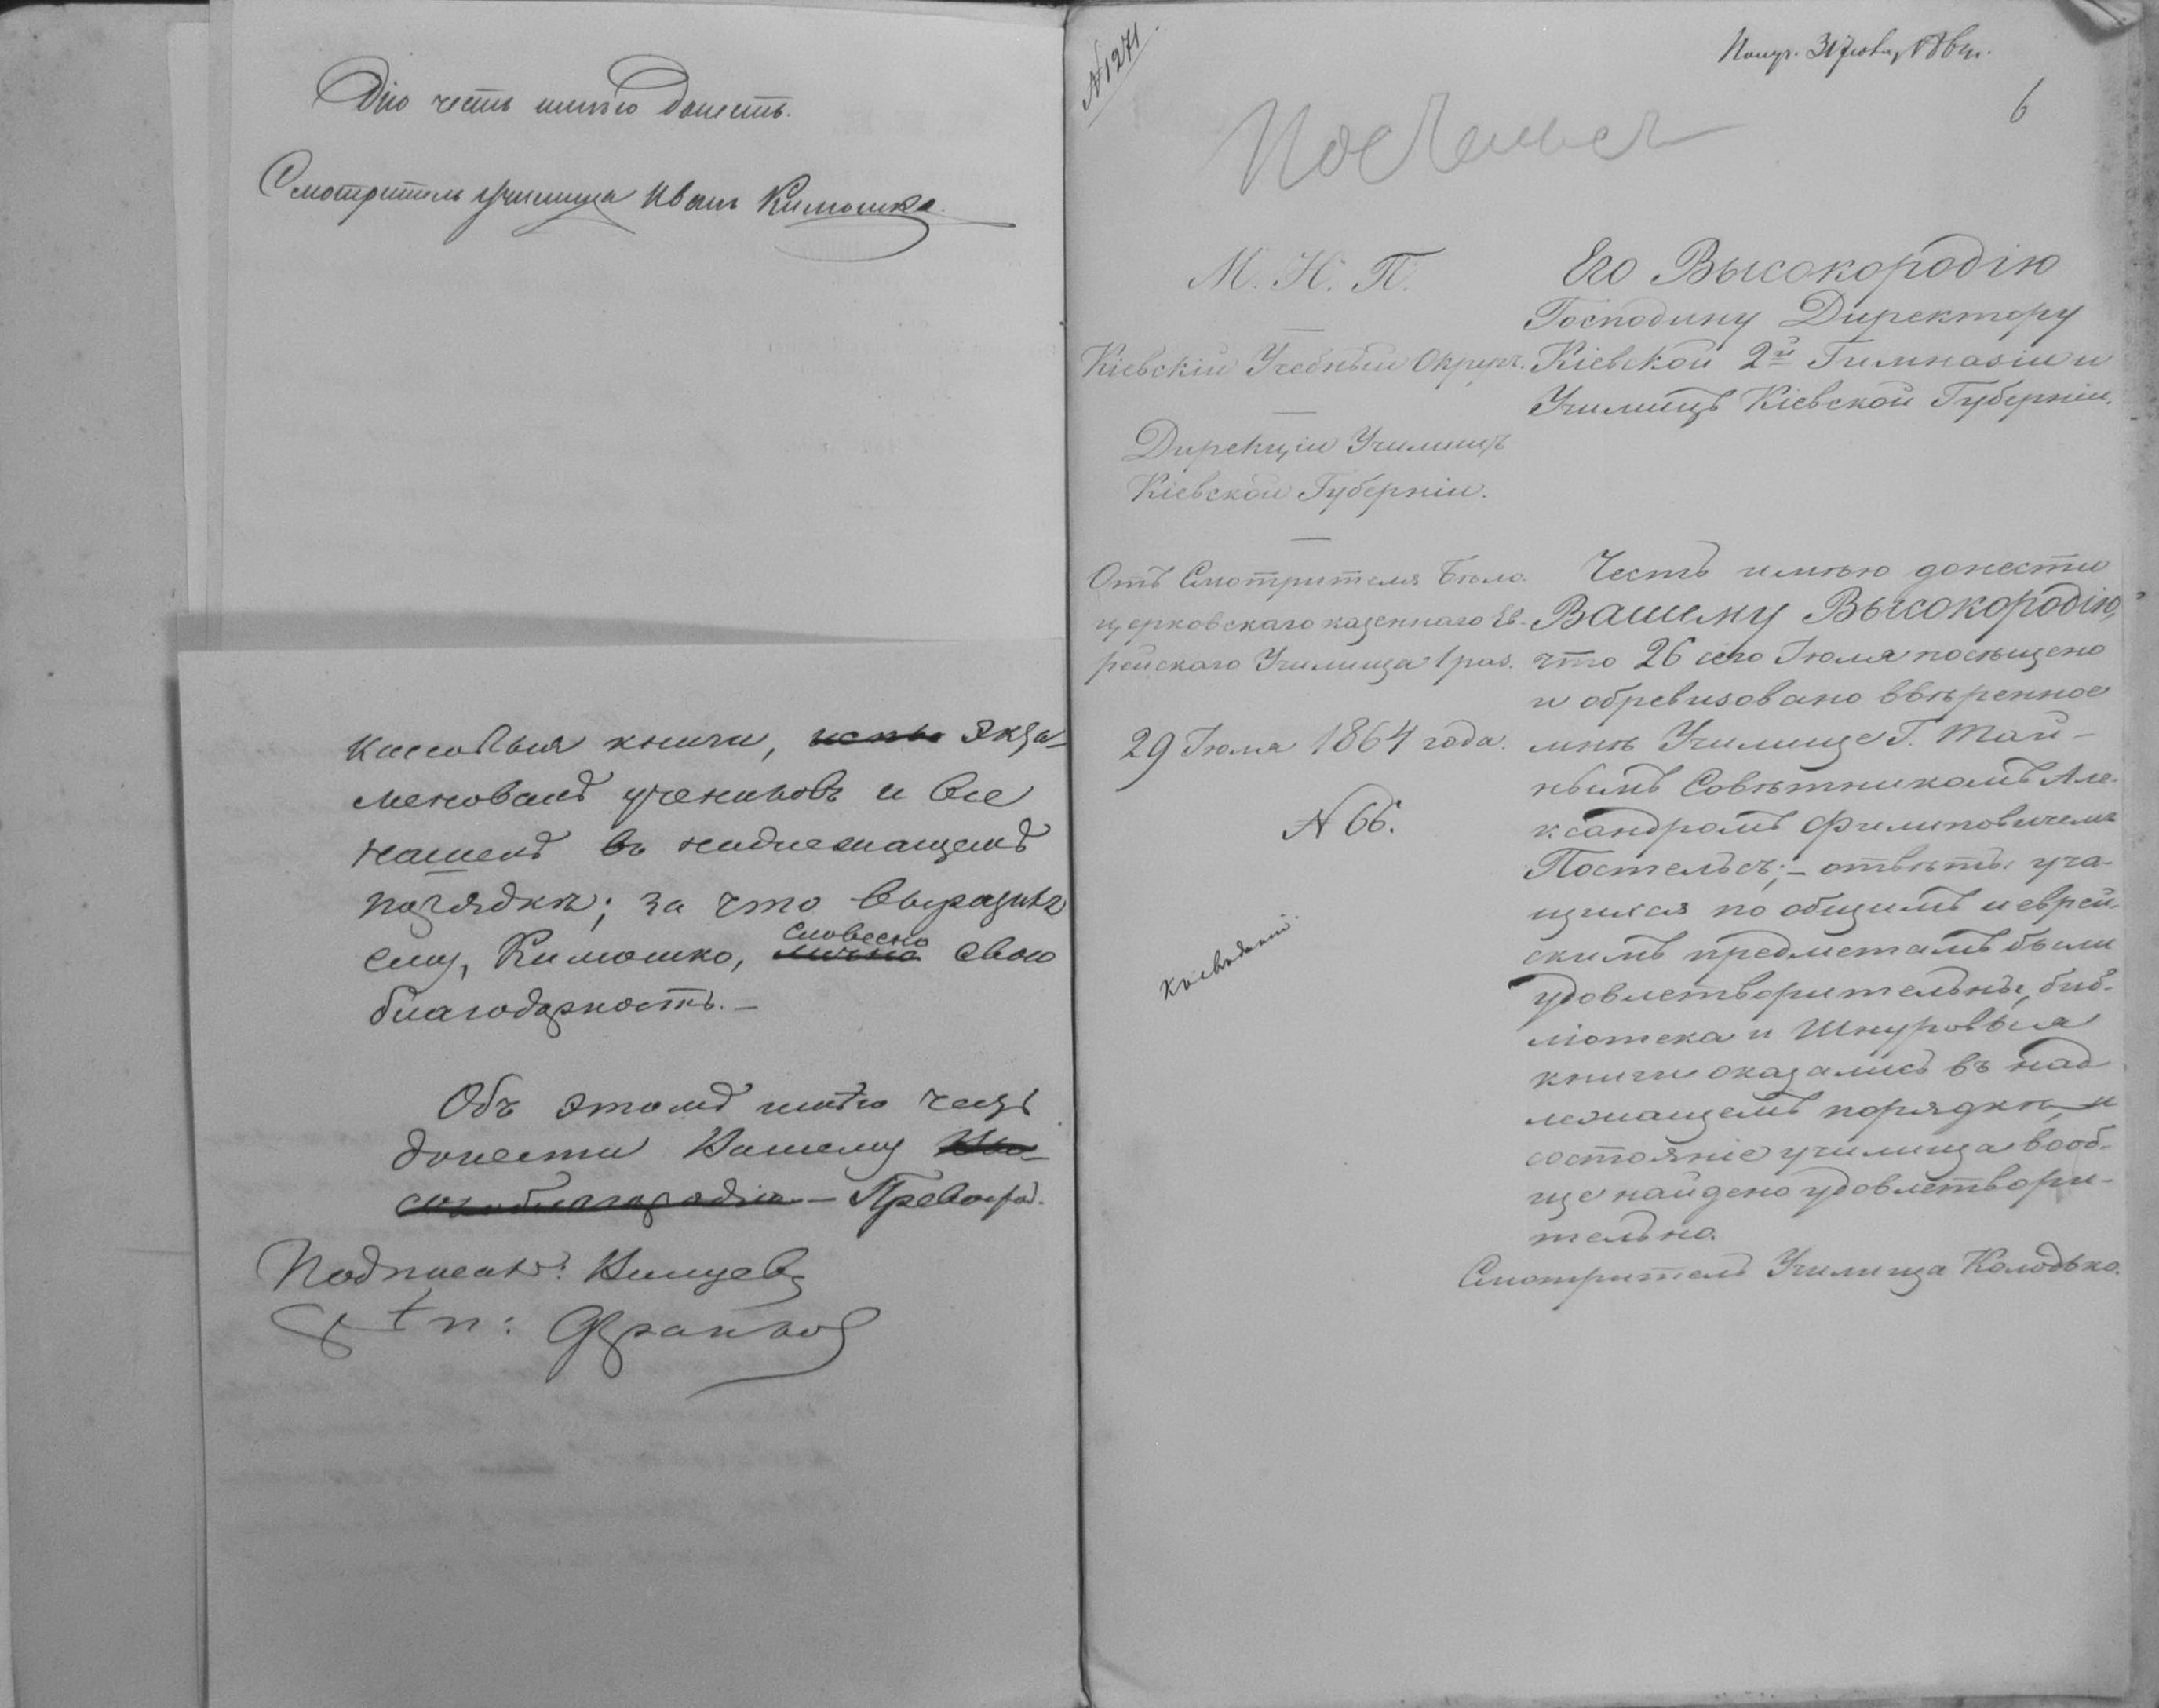 честь имѣю донесть.
Смотритель училища Иванъ Кимошко.
Кассовыя книги, экза-
меновалъ учениковъ и все
нашелъ въ надлежащемъ
порядкѣ; за что выразилъ
ему, Кимошко, словесно свою
благодарность. —
Объ этомъ имѣю честь
донести Вашему
Превосход.
Подписалъ:
№ 1271.
Получ. 31 Іюля 1864 г.
6
Постельсъ
М. Н. П.
Кіевскій Учебный Округъ.
Дирекціи Училищъ
Кіевской Губерніи.
Отъ Смотрителя Бѣло-
церковскаго казеннаго Ев-
рейскаго Училища 1 раз.
29 Іюля 1864 года.
№ 66.
Его Высокородію
Господину Директору
Кіевской 2й Гимназіи и
Училищъ Кіевской Губерніи.
Честь имѣю донести
Вашему Высокородію,
что 26 сего Іюля посѣщено
и обревизовано ввѣренное
мнѣ Училище Г. Тай-
нымъ Совѣтникомъ Але-
ксандромъ Филиповичемъ
Постельсъ; — отвѣты уча-
щихся по общимъ и еврей-
скимъ предметамъ были
удовлетворительны, биб-
ліотека и Шнуровыя
книги оказались въ над-
лежащемъ порядкѣ, и
состояніе училища вооб-
ще найдено удовлетвори-
тельно.
Смотритель Училища Колодько.